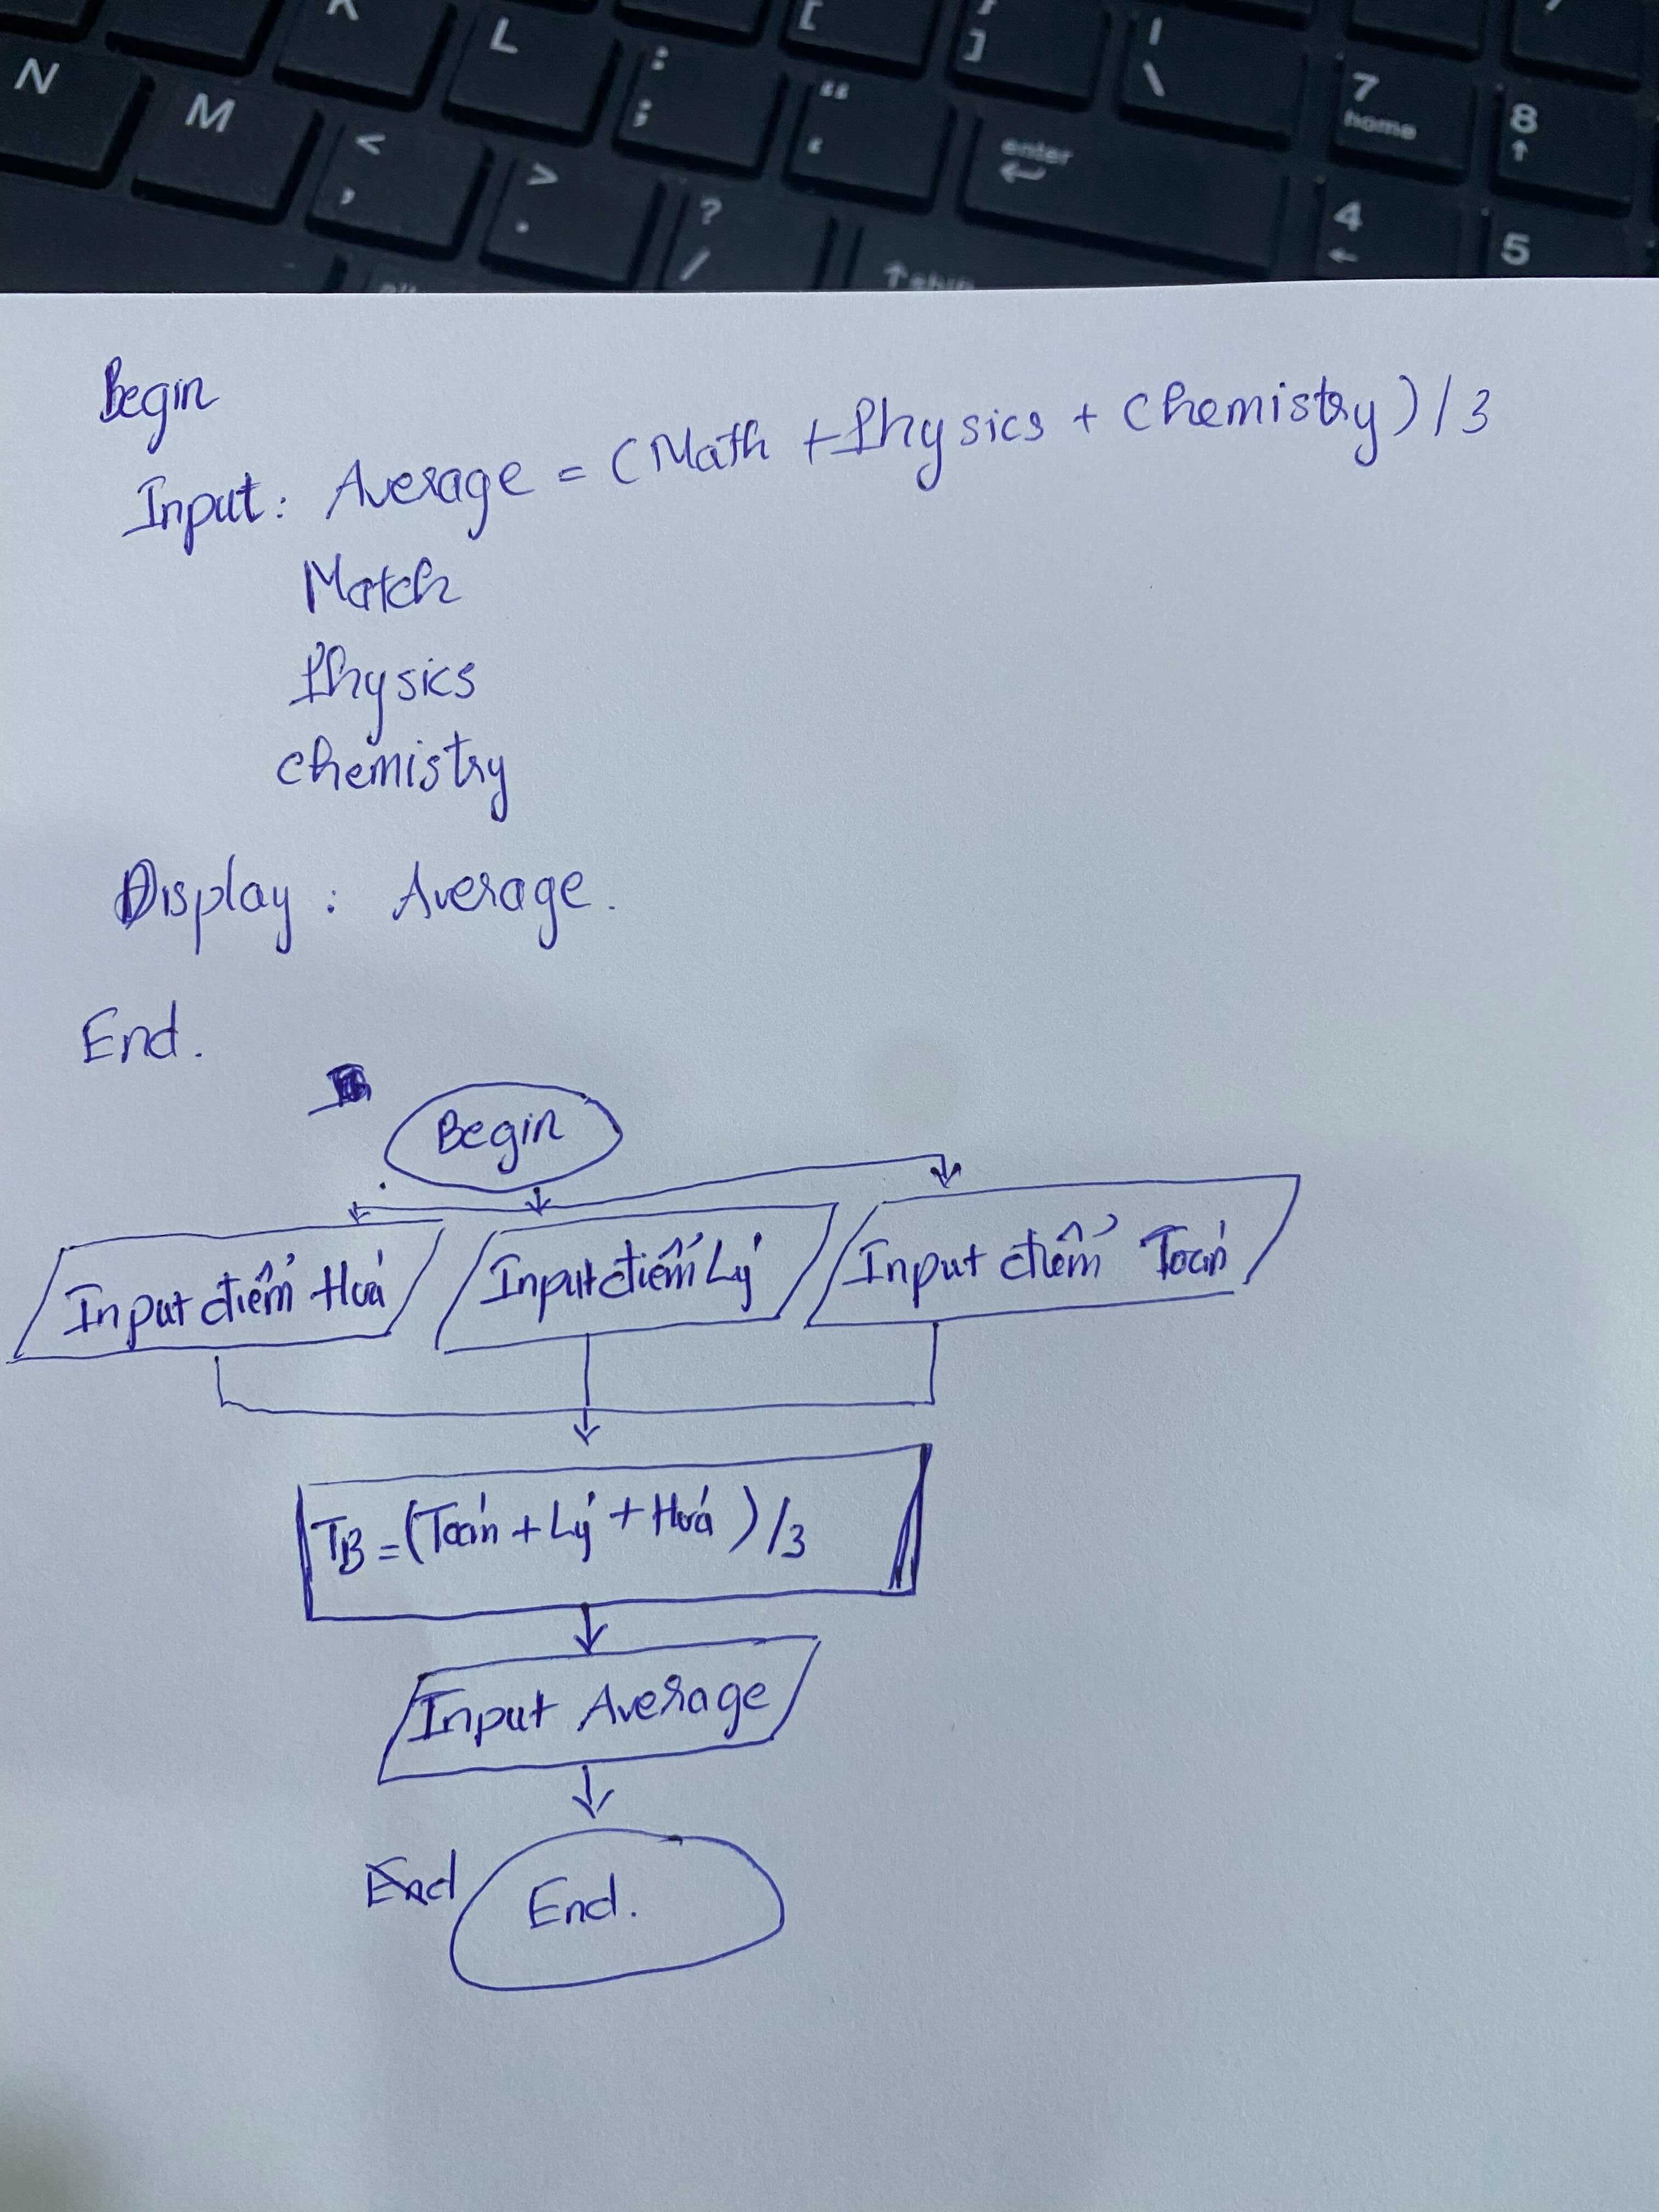 K
L
:
;
[
}
]
|
\
7
home
8
↑
N
M
<
,
>
.
?
/
"
enter
4
←
5
↑shift
Begin
Input: Average = (Math + Physics + Chemistry) / 3
Match
Physics
chemistry
Display : Average.
End.
Begin
Input điểm Hoá
Input điểm Lý
Input điểm Toán
TB = (Toán + Lý + Hoá) / 3
Input Average
End
End.